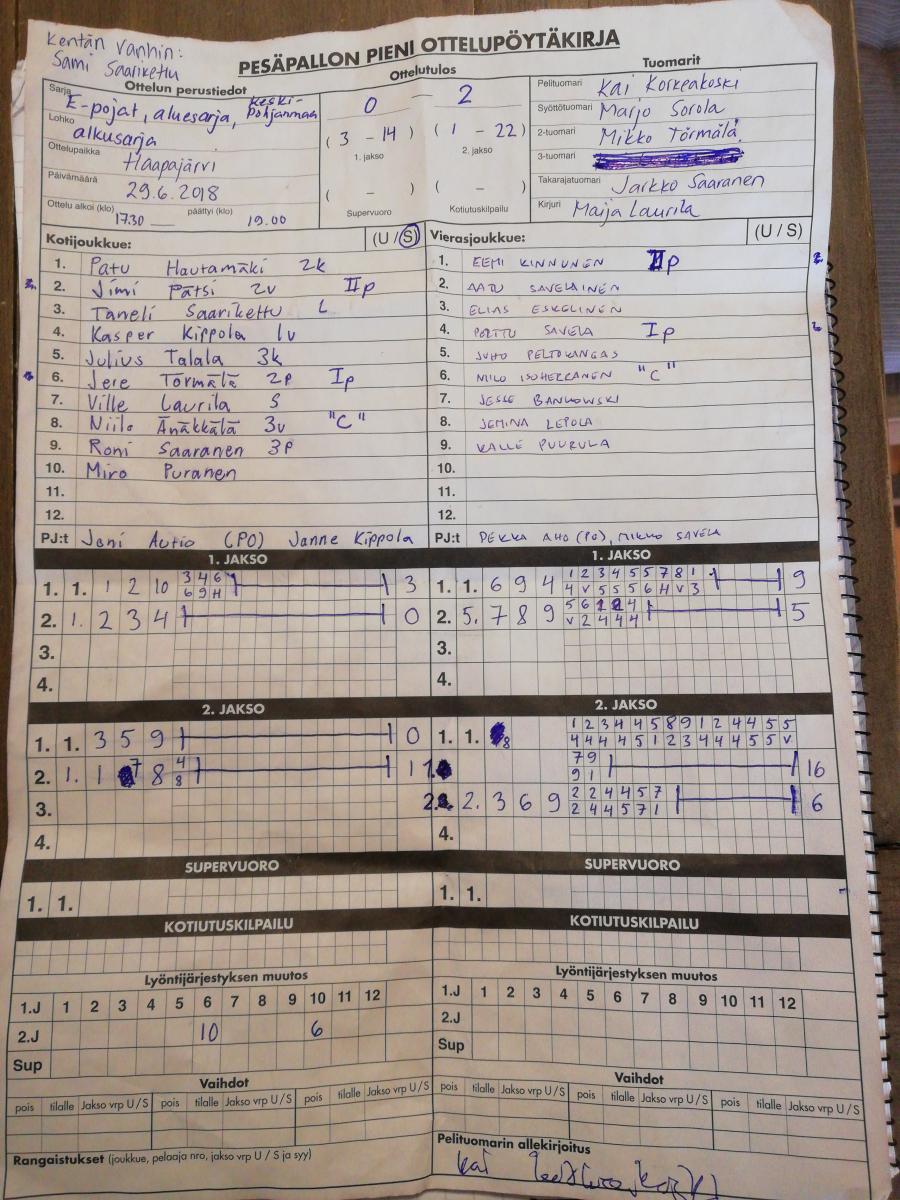 Kentän vanhin:
Sami Saarikettu
PESÄPALLON PIENI OTTELUPÖYTÄKIRJA
Ottelun perustiedot
Sarja E-pojat, aluesarja, Keski-Pohjanmaa
Lohko alkusarja
Ottelupaikka Haapajärvi
Päivämäärä 29.6.2018
Ottelu alkoi (klo) 17.30 päättyi (klo) 19.00
Ottelutulos
0 – 2
( 3 – 14 ) ( 1 – 22 )
1. jakso 2. jakso
( – ) ( – )
Supervuoro Kotiutuskilpailu
Tuomarit
Pelituomari Kai Korkeakoski
Syöttötuomari Marjo Sorola
2-tuomari Mikko Törmälä
3-tuomari
Takarajatuomari Jarkko Saaranen
Kirjuri Maija Laurila
Kotijoukkue: (U / S)
1. Patu Hautamäki 2k
2. Jimi Pätsi 2v II p
3. Taneli Saarikettu L
4. Kasper Kippola 1v
5. Julius Talala 3k
6. Jere Törmälä 2p I p
7. Ville Laurila S
8. Niilo Änäkkälä 3v "C"
9. Roni Saaranen 3p
10. Miro Puranen
11.
12.
PJ:t Jani Autio (PO) Janne Kippola
Vierasjoukkue: (U / S)
1. EEMI KINNUNEN II p
2. AATU SAVELAINEN
3. ELIAS ESKELINEN
4. PORTTU SAVELA I p
5. JUHO PELTOKANGAS
6. NIILO ISOHERRANEN "C"
7. JESSE BANKOWSKI
8. JEMINA LEPOLA
9. KALLE PUURULA
10.
11.
12.
PJ:t PEKKA AHO (PO), MIKKO SAVELA
1. JAKSO
1. 1. 1 2 10 3 4 6 3
6 9 H
2. 1. 2 3 4 0
3.
4.
1. JAKSO
1. 1. 6 9 4 1 2 3 4 5 5 7 8 1 9
4 V 5 5 5 6 H V 3
2. 5. 7 8 9 5 6 1 2 4 5
V 2 4 4 4
3.
4.
2. JAKSO
1. 1. 3 5 9 0
2. 1. 1 7 8 4 1
8
3.
4.
2. JAKSO
1. 1. 8 1 2 3 4 4 5 8 9 1 2 4 4 5 5
4 4 4 4 5 1 2 3 4 4 4 5 5 V
1. 7 9 16
9 1
2. 2. 3 6 9 2 2 4 4 5 7 6
2 4 4 5 7 1
4.
SUPERVUORO
1. 1.
SUPERVUORO
1. 1.
KOTIUTUSKILPAILU
KOTIUTUSKILPAILU
Lyöntijärjestyksen muutos
1.J 1 2 3 4 5 6 7 8 9 10 11 12
2.J 10 6
Sup
Lyöntijärjestyksen muutos
1.J 1 2 3 4 5 6 7 8 9 10 11 12
2.J
Sup
Vaihdot
pois tilalle Jakso vrp U / S pois tilalle Jakso vrp U / S pois tilalle Jakso vrp U / S
Vaihdot
pois tilalle Jakso vrp U / S pois tilalle Jakso vrp U / S pois tilalle Jakso vrp U / S
Rangaistukset (joukkue, pelaaja nro, jakso vrp U / S ja syy)
Pelituomarin allekirjoitus
Kai